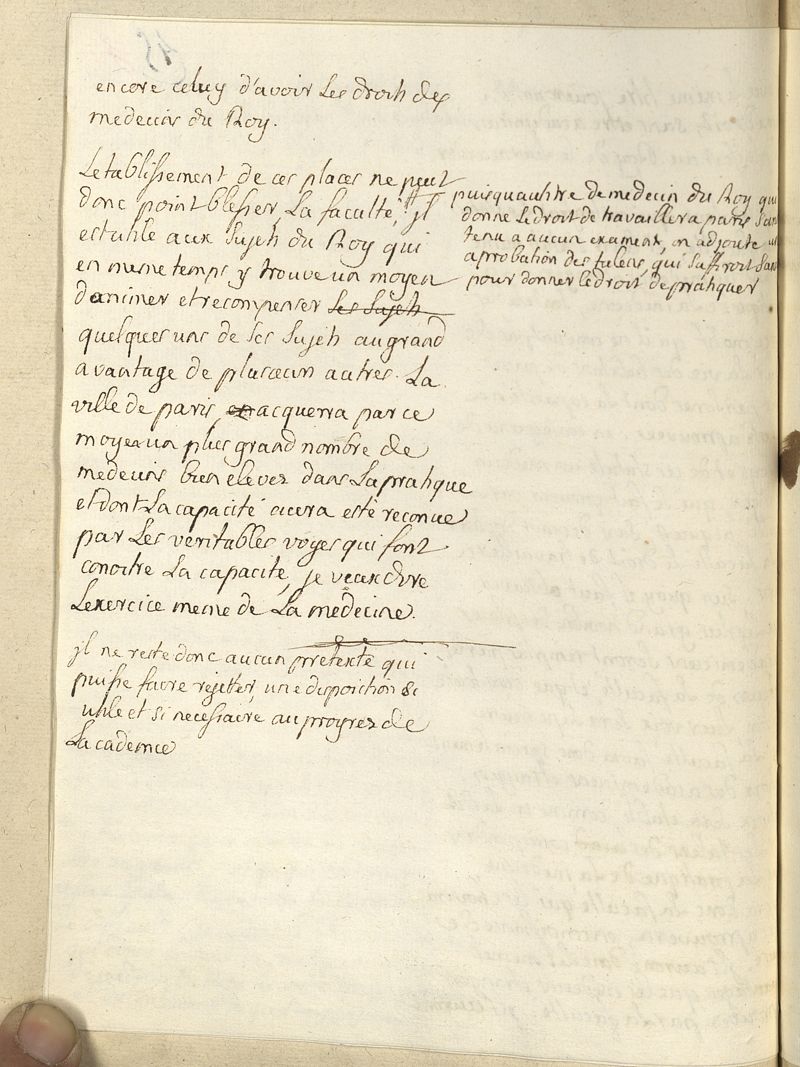 encore celuy d'avoir Les droits des
medecins du Roy.
Letablissement de ces places ne peut
donc point blesser La faculté, jl
est utile aux sujets du Roy qui
en meme temps y trouve un moyen
d'animer et recompenser Les Sujets
quelques uns de ses sujets au grand
avantage de plusieurs autres. La
ville de paris, en acquerra par ce
moyen un plus grand nombre de
medecins bien elevez dans La pratique
et dont La capacité aura esté reconue
par Les veritables voyes qui font
conoitre La capacité, je veux dire
Lexercice meme de La medecine.
jl ne reste donc aucun pretexte qui
puisse faire rejetter, une disposition si
utile et si necessaire au progrez de
Lacademie
puisqu'au titre de medecin du Roy qui
donne Le droit de travailler a paris sans
tenu a aucun examen, on adjoute une
aprobation des talens, qui suffiroit
pour donner le droit de pratiquer